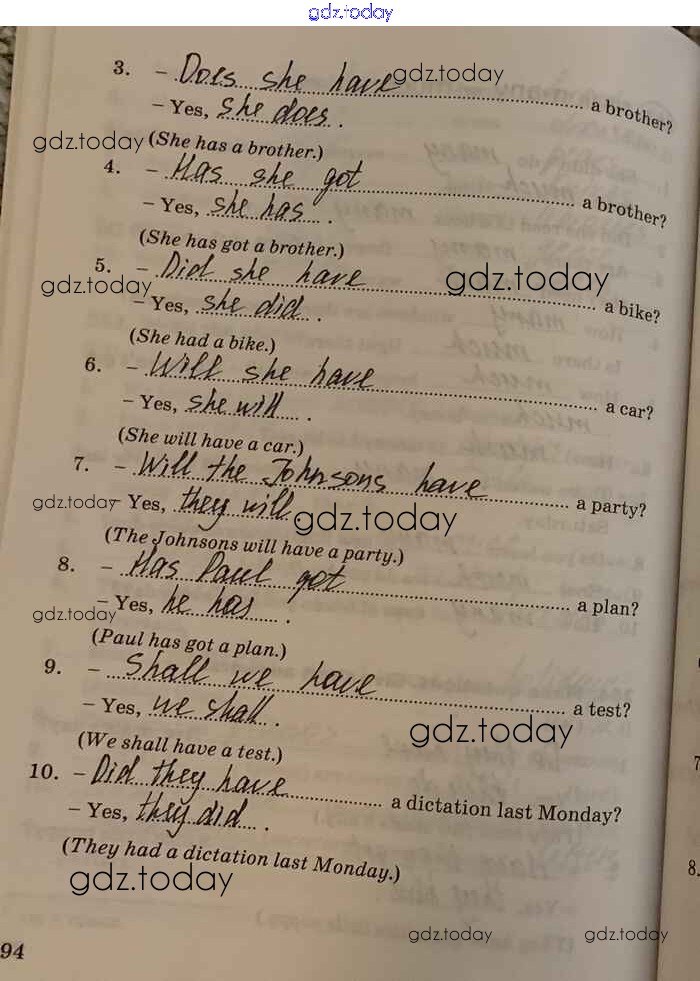 gdz.today
3. – Does she have a brother?
gdz.today
– Yes, she does.
gdz.today
(She has a brother.)
4. – Has she got a brother?
– Yes, she has.
(She has got a brother.)
5. – Did she have a bike?
gdz.today
gdz.today
– Yes, she did.
(She had a bike.)
6. – Will she have a car?
– Yes, she will.
(She will have a car.)
7. – Will the Johnsons have a party?
gdz.today
– Yes, they will.
gdz.today
(The Johnsons will have a party.)
8. – Has Paul got a plan?
– Yes, he has.
gdz.today
(Paul has got a plan.)
9. – Shall we have a test?
– Yes, we shall.
gdz.today
(We shall have a test.)
10. – Did they have a dictation last Monday?
– Yes, they did.
(They had a dictation last Monday.)
gdz.today
gdz.today
gdz.today
94
7
8.